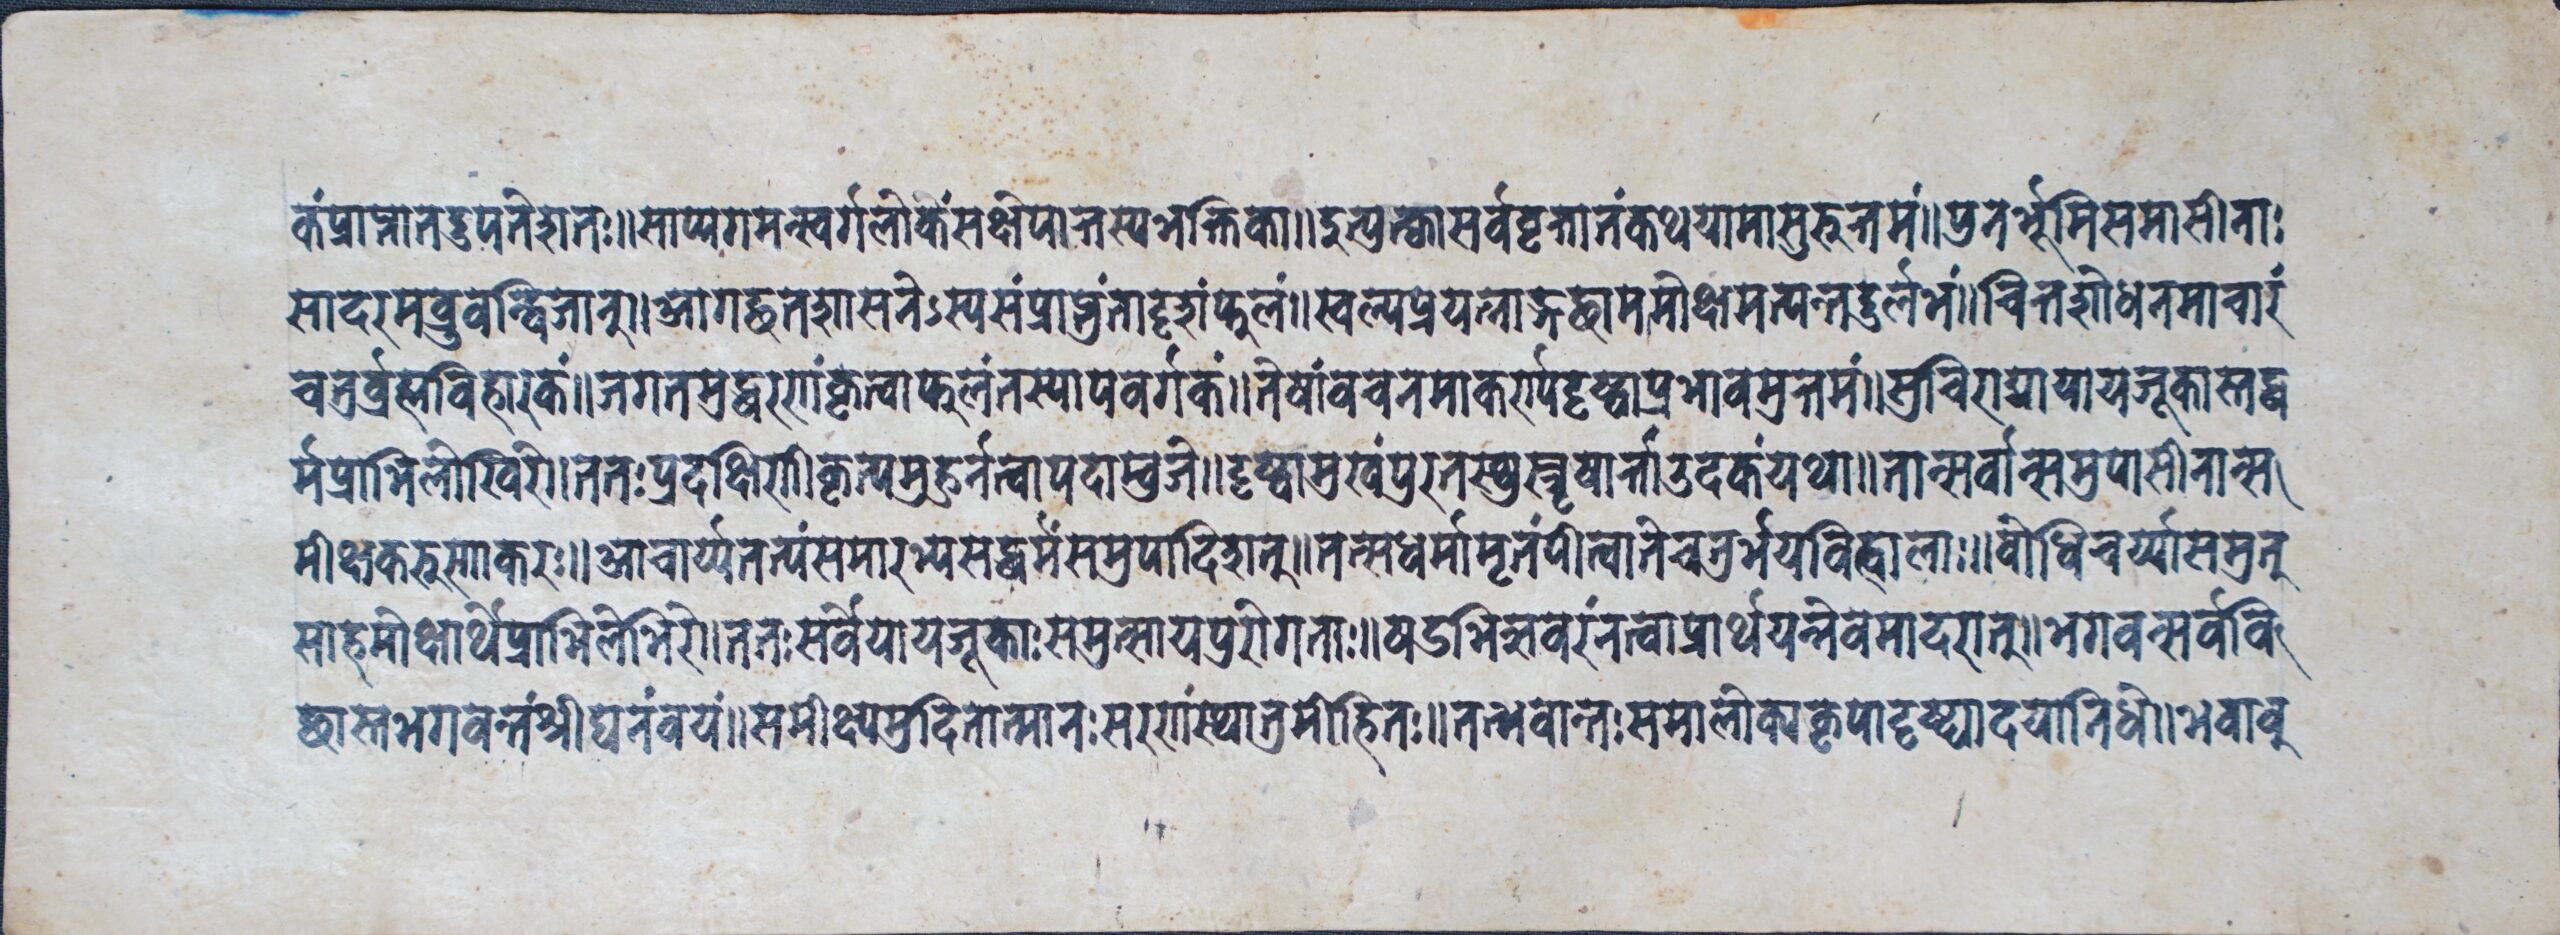 कंप्राप्नातदुपतेशतः॥साप्यगमत्स्वर्गलोकेसक्षेपात्तस्यभक्तिका॥इत्युक्त्वासर्ववृत्तातंकथयामासुरुत्तमं॥पुनर्भूमिसमासीनाः
सादरमब्रुवन्द्विजान्॥आगछतशासनेऽस्यसंप्राप्तुंतादृशंफलं॥स्वल्पप्रेयत्नाङ्गछाममोक्षमत्यन्तदुर्लभं॥चित्तशोधनमाचारं
चतुर्ब्रह्मविहारकं॥जगतमुद्धरणंकृत्वाफलंतस्यापवर्गकं॥तेषांवचनमाकर्ण्यदृष्ट्वाप्रभावमुत्तमं॥मुचिराद्यायायजूकास्तद्ध
र्मप्राभिलेखिरे॥ततःप्रदक्षिणीकृत्यमुहुर्नत्वापदाम्बुजे॥दृष्ट्वामुखंपुरतस्थुस्तृषार्ताउदकंयथा॥तान्सर्वान्समुपासीनान्स
मीक्षकरुणाकरः॥आचार्य्यतत्यंसमारभ्यसद्धर्मंसमुपादिशत्॥तत्सधर्मामृतंपीत्वातेचतुर्भयविह्वालाः॥बोधिचर्य्यासमुत्
साहमोक्षार्थेप्राभिलेभिरे॥ततःसर्वेयायजूकाःसमुत्सायपुरोगताः॥षडभिज्ञवरंनत्वाप्रार्थयन्तेवमादरात्॥भगवन्सर्ववि
छास्तभगवन्तंश्रीघनंवयं॥समीक्ष्यमुदितात्मानःसरणंस्थातुमीहितः॥तत्भवान्तःसमालोक्यकृपादृष्ट्यादयानिधे॥भवाबु